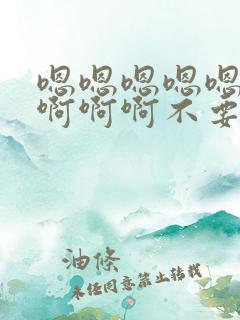 嗯嗯嗯嗯嗯
啊啊啊不要
油條
未经同意禁止转载